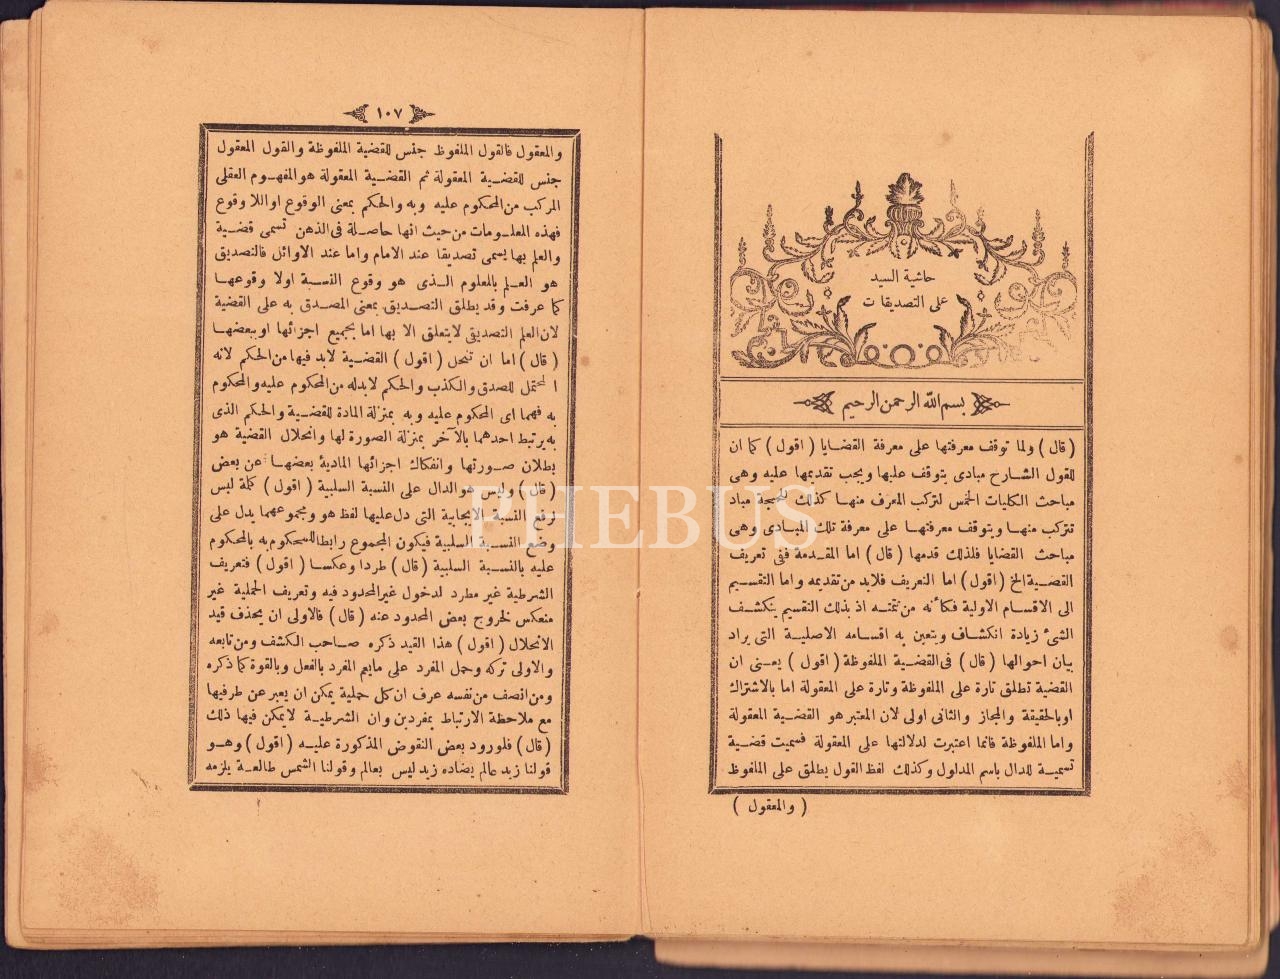 حاشية السيد
على التصديقات
بسم الله الرحمن الرحيم
( قال ) ولما توقف معرفتها على معرفة القضايا ( اقول ) كما ان
للقول الشارح مبادى يتوقف عليها ويجب تقديمها عليه وهى
مباحث الكليات الخمس لتركب المعرف منها كذلك للحجة مباد
تتركب منها ويتوقف معرفتها على معرفة تلك المبادى وهى
مباحث القضايا فلذلك قدمها ( قال ) اما المقدمة ففى تعريف
القضية الخ ( اقول ) اما التعريف فلابد من تقديمه واما التقسيم
الى الاقسام الاولية فكأنه من تتمته اذ بذلك التقسيم ينكشف
الشئ زيادة انكشاف ويتعين به اقسامه الاصلية التى يراد
بيان احوالها ( قال ) فى القضية الملفوظة ( اقول ) يعنى ان
القضية تطلق تارة على الملفوظة وتارة على المعقولة اما بالاشتراك
او بالحقيقة والمجاز والثانى اولى لان المعتبر هو القضية المعقولة
واما الملفوظة فانما اعتبرت لدلالتها على المعقولة فسميت قضية
تسمية للدال باسم المدلول وكذلك لفظ القول يطلق على الملفوظ
( والمعقول )
١٠٧
والمعقول فالقول الملفوظ جنس للقضية الملفوظة والقول المعقول
جنس للقضية المعقولة ثم القضية المعقولة هو المفهوم العقلى
المركب من المحكوم عليه وبه والحكم بمعنى الوقوع او اللا وقوع
فهذه المعلومات من حيث انها حاصلة فى الذهن تسمى قضية
والعلم بها يسمى تصديقا عند الامام واما عند الاوائل فالتصديق
هو العلم بالمعلوم الذى هو وقوع النسبة اولا وقوعها
كما عرفت وقد يطلق التصديق بمعنى المصدق به على القضية
لان العلم التصديقى لايتعلق الا بها اما بجميع اجزائها او ببعضها
( قال ) اما ان تنحل ( اقول ) القضية لابد فيها من الحكم لانه
المحتمل للصدق والكذب والحكم لابد له من المحكوم عليه والمحكوم
به فهما اى المحكوم عليه وبه بمنزلة المادة للقضية والحكم الذى
به يرتبط احدهما بالآخر بمنزلة الصورة لها وانحلال القضية هو
بطلان صورتها وانفكاك اجزائها المادية بعضها عن بعض
( قال ) وليس هو الدال على النسبة السلبية ( اقول ) كلمة ليس
لرفع النسبة الايجابية التى دل عليها لفظ هو ومجموعهما يدل على
وضع النسبة السلبية فيكون المجموع رابطا للمحكوم به بالمحكوم
عليه بالنسبة السلبية ( قال ) طردا وعكسا ( اقول ) فتعريف
الشرطية غير مطرد لدخول غير المحدود فيه وتعريف الحملية غير
منعكس لخروج بعض المحدود عنه ( قال ) فالاولى ان يحذف قيد
الانحلال ( اقول ) هذا القيد ذكره صاحب الكشف ومن تابعه
والاولى تركه وحمل المفرد على مايعم المفرد بالفعل وبالقوة كما ذكره
ومن انصف من نفسه عرف ان كل حملية يمكن ان يعبر عن طرفيها
مع ملاحظة الارتباط بمفردين وان الشرطية لايمكن فيها ذلك
( قال ) فلورود بعض النقوض المذكورة عليه ( اقول ) وهو
قولنا زيد عالم يضاده زيد ليس بعالم وقولنا الشمس طالعة يلزمه
PHEBUS